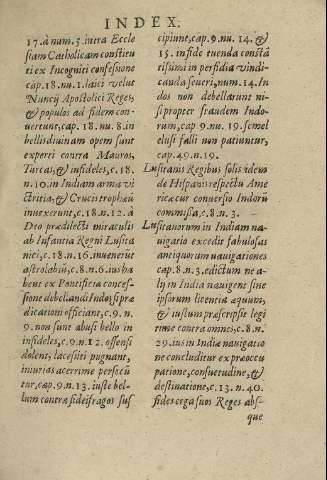 INDEX.
17. à num. 5. intra Eccle
siam Catholicam constitu
ti ex Incognici confessione
cap. 18. nu. 1. laici velut
Nuncij Apostolici Reges,
& populos ad fidem con-
uertunt, cap. 18. nu. 8. in
bellis diuinam opem sunt
experti contra Mauros,
Turcas, & infideles, c. 18.
n. 10. in Indiam arma vi
ctricia, & Crucis trophæũ
inuexerunt, c. 18. n. 12. à
Deo prædilecti miraculis
ab Infantia Regni Lusita
nici, c. 18. n. 16. inuenerũt
astrolabiũ, c. 8. n. 6. ius ha
bent ex Pontificia conces-
sione debellandi Indos si præ
dicationi officiant, c. 9. n.
9. non sunt abusi bello in
infideles, c. 9. n. 12. offensi
dolent, lacesiti pugnant,
iniurias acerrime persecũ
tur, cap. 9. n. 13. iuste bel-
lum contra fideifragos sus
cipiunt, cap. 9. nu. 14. &
15. in fide tuenda constã
tissimi in perfidia vindi-
canda seueri, num. 14. In
dos non debellarunt ni-
si propter fraudem Indo-
rum, cap 9. nu. 19. semel
elusi falli non patiuntur,
cap. 49. n. 19.
Lusitanis Regibus solis idem
de Hispanis respectu Ame
ricæ cur conuersio Indorũ
commissa, c. 8. n. 3.
Lusitanorum in Indiam na-
uigatio excedit fabulosas
antiquorum nauigationes
cap. 8. n. 3. edictum ne a-
lij in India nauigent sine
ipsorum licentia æquum,
& iustum præscriptio legi
time contra omnes, c. 8. n.
29. ius in Indiæ nauigatio
ne concluditur ex præoccu
patione, consuetudine, &
destinatione, c. 13. n. 40.
fides erga suos Reges abs-
que